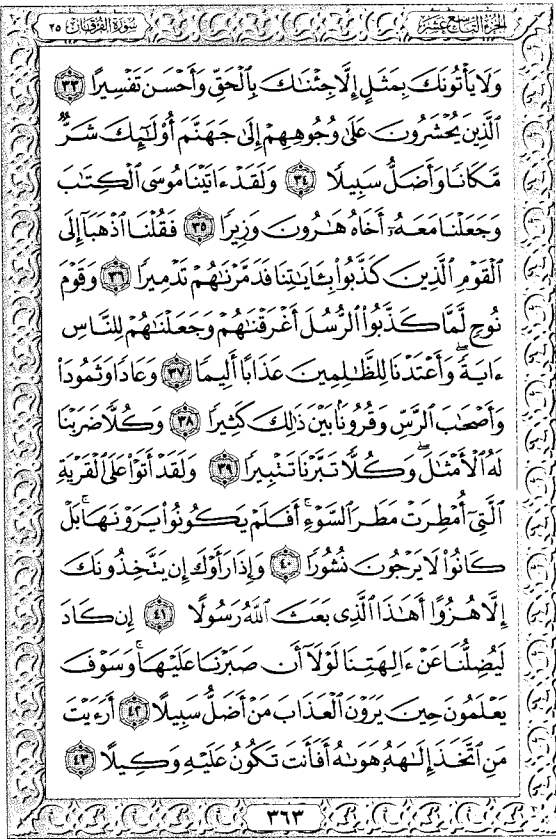 الجزء التاسع عشر
سورة الفرقان ٢٥
وَلَا يَأْتُونَكَ بِمَثَلٍ إِلَّا جِئْنَٰكَ بِٱلْحَقِّ وَأَحْسَنَ تَفْسِيرًا ٣٣
ٱلَّذِينَ يُحْشَرُونَ عَلَىٰ وُجُوهِهِمْ إِلَىٰ جَهَنَّمَ أُو۟لَٰٓئِكَ شَرٌّ
مَّكَانًا وَأَضَلُّ سَبِيلًا ٣٤ وَلَقَدْ ءَاتَيْنَا مُوسَى ٱلْكِتَٰبَ
وَجَعَلْنَا مَعَهُۥٓ أَخَاهُ هَٰرُونَ وَزِيرًا ٣٥ فَقُلْنَا ٱذْهَبَآ إِلَى
ٱلْقَوْمِ ٱلَّذِينَ كَذَّبُوا۟ بِـَٔايَٰتِنَا فَدَمَّرْنَٰهُمْ تَدْمِيرًا ٣٦ وَقَوْمَ
نُوحٍ لَّمَّا كَذَّبُوا۟ ٱلرُّسُلَ أَغْرَقْنَٰهُمْ وَجَعَلْنَٰهُمْ لِلنَّاسِ
ءَايَةً ۖ وَأَعْتَدْنَا لِلظَّٰلِمِينَ عَذَابًا أَلِيمًا ٣٧ وَعَادًا وَثَمُودَا۟
وَأَصْحَٰبَ ٱلرَّسِّ وَقُرُونًۢا بَيْنَ ذَٰلِكَ كَثِيرًا ٣٨ وَكُلًّا ضَرَبْنَا
لَهُ ٱلْأَمْثَٰلَ ۖ وَكُلًّا تَبَّرْنَا تَتْبِيرًا ٣٩ وَلَقَدْ أَتَوْا۟ عَلَى ٱلْقَرْيَةِ
ٱلَّتِىٓ أُمْطِرَتْ مَطَرَ ٱلسَّوْءِ ۚ أَفَلَمْ يَكُونُوا۟ يَرَوْنَهَا ۚ بَلْ
كَانُوا۟ لَا يَرْجُونَ نُشُورًا ٤٠ وَإِذَا رَأَوْكَ إِن يَتَّخِذُونَكَ
إِلَّا هُزُوًا أَهَٰذَا ٱلَّذِى بَعَثَ ٱللَّهُ رَسُولًا ٤١ إِن كَادَ
لَيُضِلُّنَا عَنْ ءَالِهَتِنَا لَوْلَآ أَن صَبَرْنَا عَلَيْهَا ۚ وَسَوْفَ
يَعْلَمُونَ حِينَ يَرَوْنَ ٱلْعَذَابَ مَنْ أَضَلُّ سَبِيلًا ٤٢ أَرَءَيْتَ
مَنِ ٱتَّخَذَ إِلَٰهَهُۥ هَوَىٰهُ أَفَأَنتَ تَكُونُ عَلَيْهِ وَكِيلًا ٤٣
٣٦٣